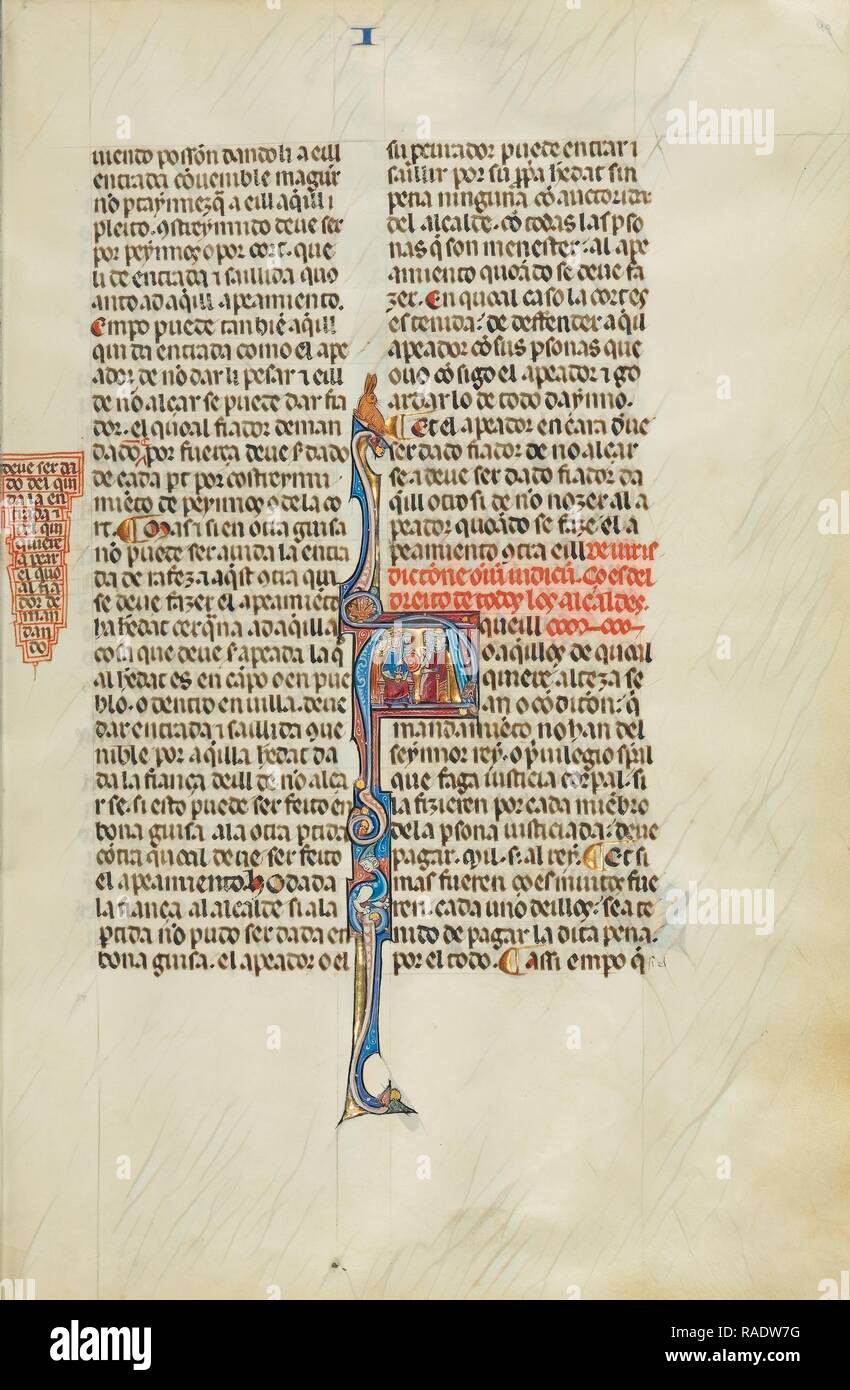 I
uiento posson dandoli a eill
entrada cōuenible magür
no ptaynnezq̄ a eill aq̄ill i
pleito. ꝯstreynnido deue ser
por peynnos o por cort. que
li de entrada ⁊ saillida quo
anto ad aq̄ill apeamiento.
Empo puede tanbiē aq̄ill
qui da entrada como el ape
ador de nō dar li pesar ⁊ eill
de nō alçar se puede dar fia
dor. el quoal fiador deman
dado por fuerça deue s̄ dado
de cada pt por costreynni
miēto de peynnos o de la co
rt. Mas si en otra guisa
nō puede ser auida la entra
da de rafez a aq̄st otra qui
se deue fazer el apeamiēto
ha hedat cerq̄na ad aq̄illa
cosa que deue s̄ apeada la q̄
al hedat es en cāpo o en pue
blo. o dentro en uilla. deue
dar entrada ⁊ saillida ꝯue
nible por aq̄illa hedat da
da la fiança deill de nō alça
r se. si esto puede ser feito en
bona guisa ala otra ptida
cōtra quoal deue ser feito
el apeamiento. Dada
la fiança al alcalde si ala
ptida nō pudo ser dada en
bona guisa. el apeador o el
deue ser da
do del qui
da la en
trada ⁊
del qui
quiere
apear
el quo
al fia
dor de
man
dan
do
su peurador puede entrar ⁊
saillir por su ppa hedat sin
pena ninguna cō auctorida
del alcalde. cō todas las pso
nas q̄ son menester. al ape
amiento quoādo se deue fa
zer. En quoal caso la cort es
es tenida de deffender aq̄ll
apeador cō sus psonas que
ouo cōsigo el apeador ⁊ go
ardar lo de todo daynno.
Et el apeador encara deue
ser dado fiador de no alçar
se a deue ser dado fiador da
q̄ill otro si de nō nozer al a
peador quoādo se faze el a
peamiento ꝯtra eill de iuris
dictōne oīū iudicū. Co es del
dreito de todos los alcaldes.
queill
o. aq̄illos de quoal
quiere alteza se
an o cōdicion: q̄
mandamiēto no han del
seynnor rey. o priuilegio spāl
que faga iusticia corpal. si
la fizieren por cada miēbro
de la psona iusticiada: deue
pagar. mil. s. al rey. Et si
mas fueren ço es muitos fue
ren. cada uno deillos. sea te
nido de pagar la dita pena.
por el todo. Assi empo q̄
alamy
Image ID: RADW7G
www.alamy.com